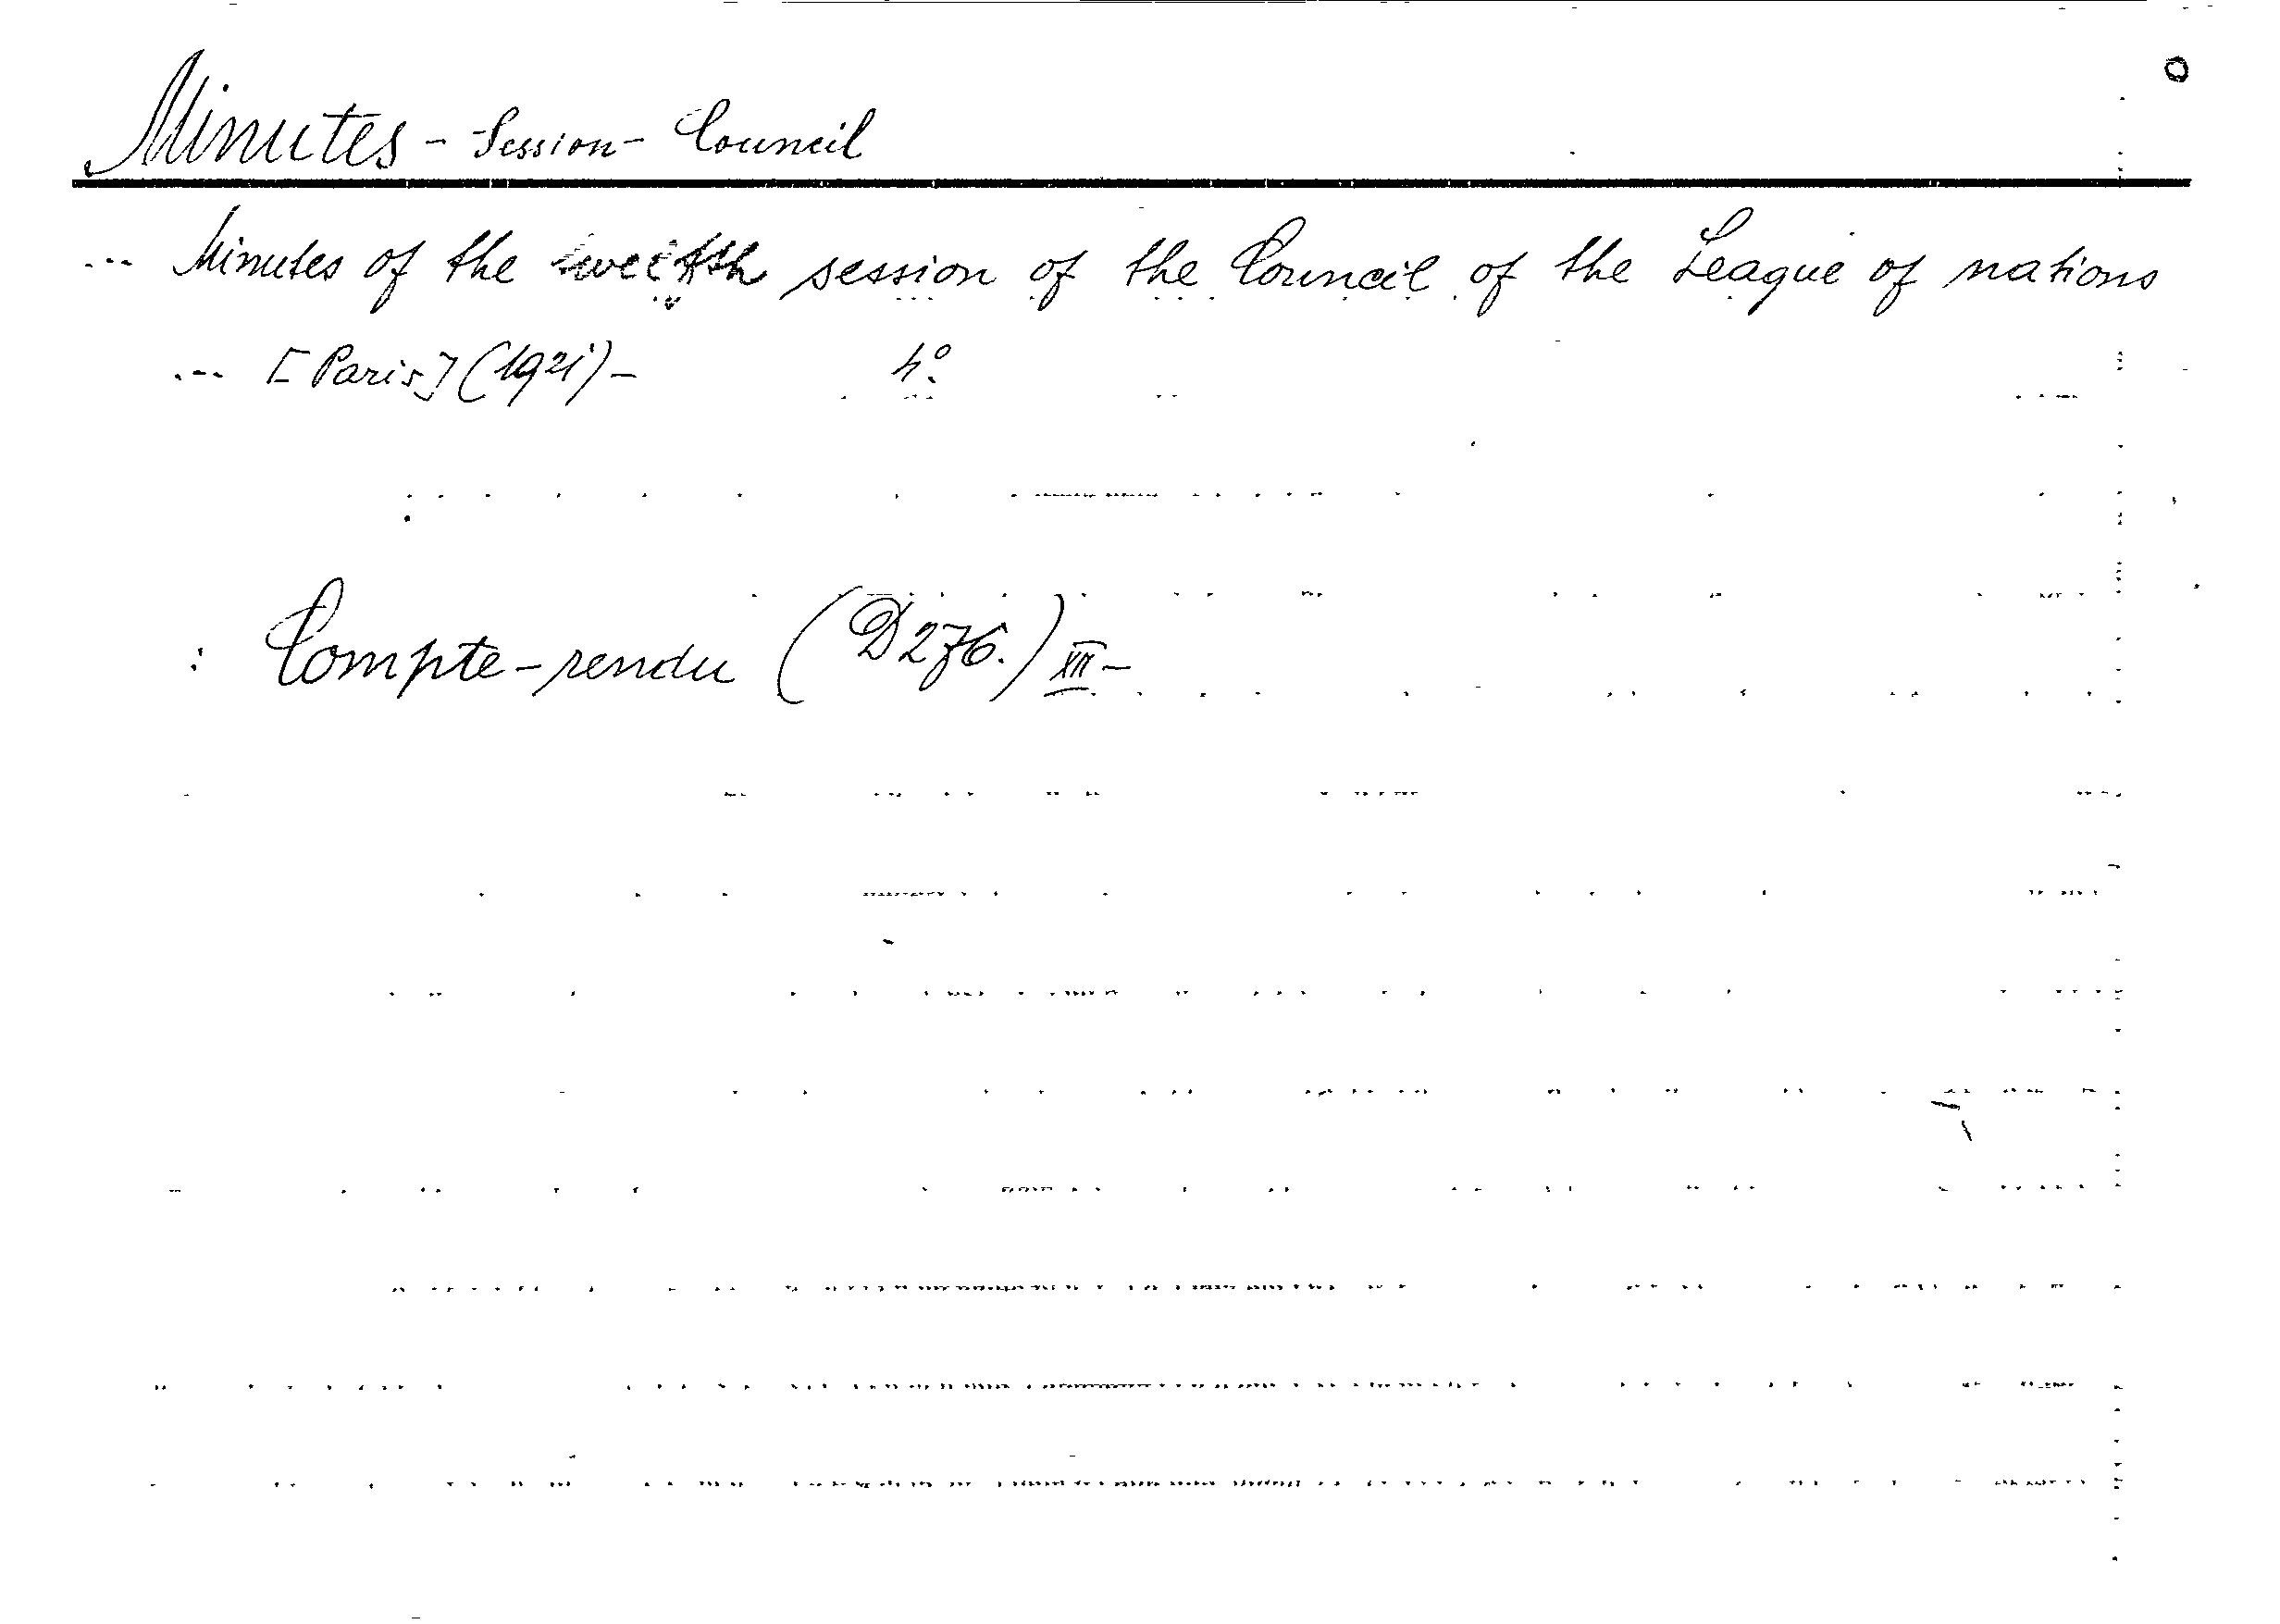 Minutes - Session - Council
--- Minutes of the twelfth session of the Council of the League of nations
--- [Paris] (1921) - 4º.
: Compte-rendu (D276.) XII -